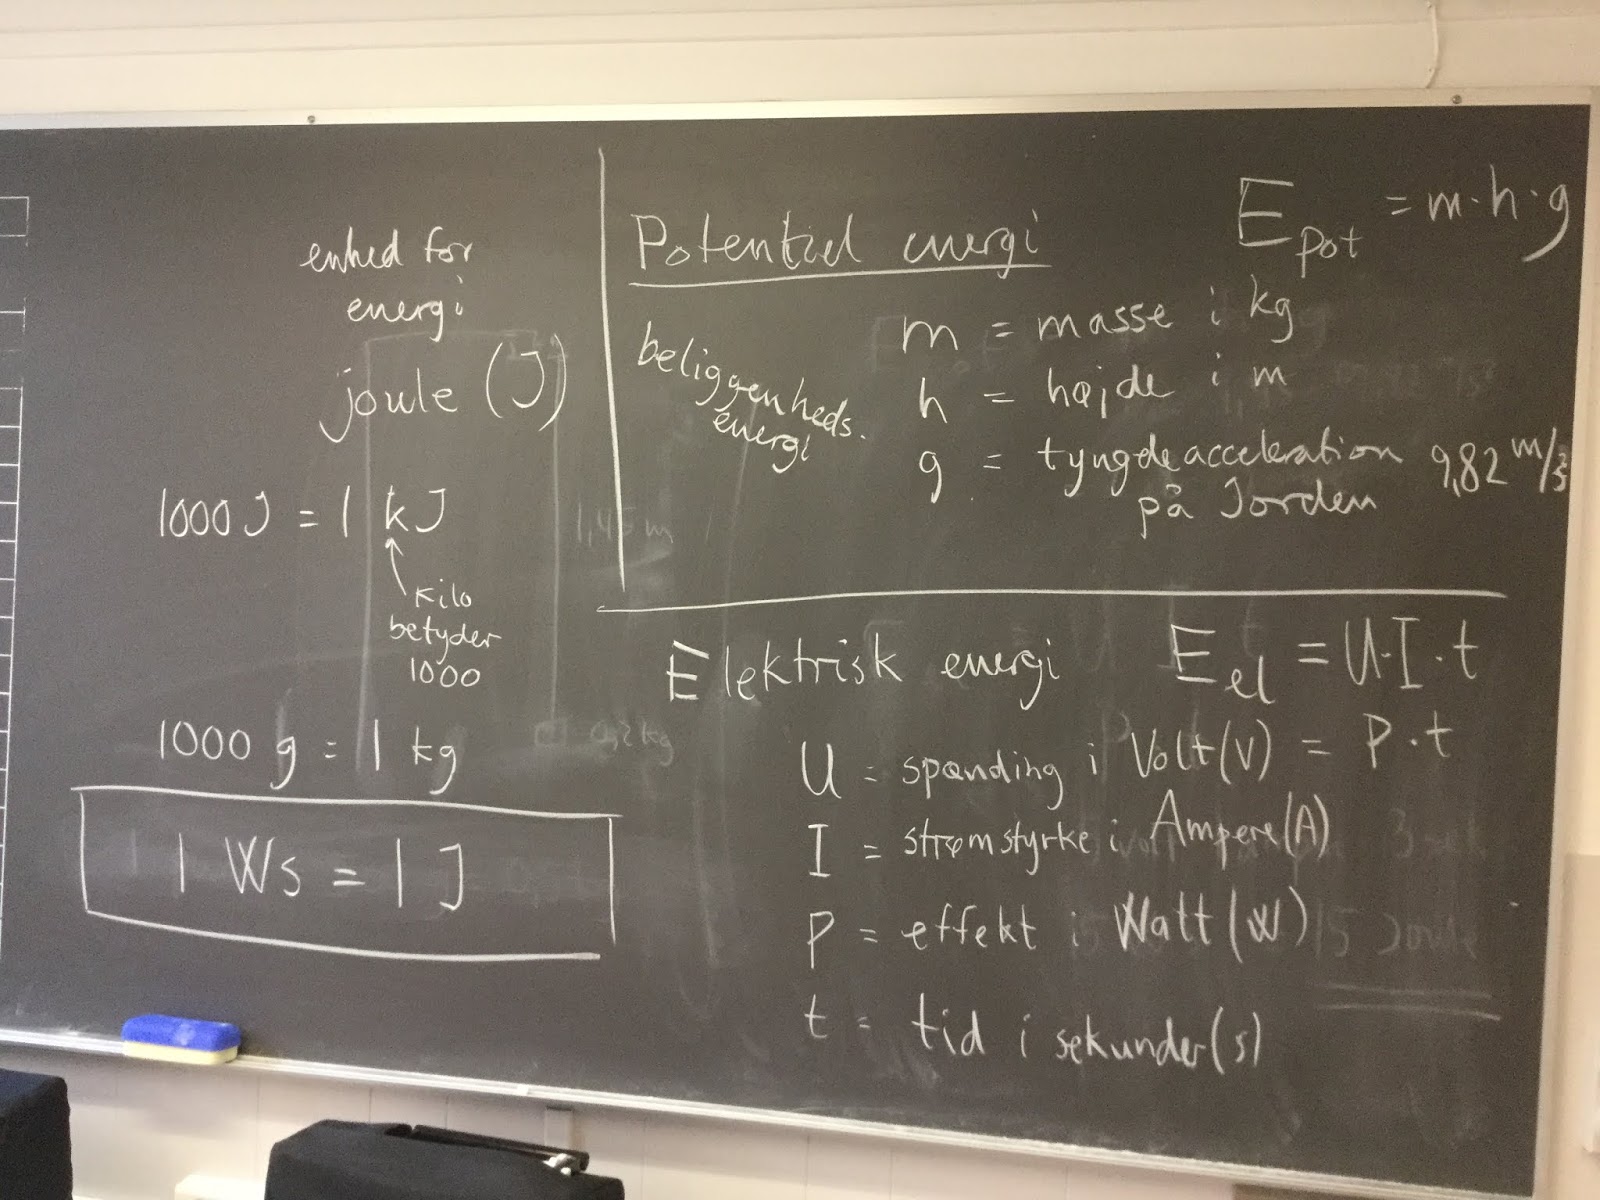 enhed for
energi
joule (J)
1000 J = 1 kJ
Kilo
betyder
1000
1000 g = 1 kg
1 Ws = 1 J
Potentiel energi
E pot = m · h · g
beliggenheds.
energi
m = masse i kg
h = højde i m
g = tyngdeacceleration 9,82 m/s²
på Jorden
1,45 m
0,2 kg
Elektrisk energi
E el = U · I · t
= P · t
U = spænding i Volt (V)
I = strømstyrke i Ampere (A)
P = effekt i Watt (W)
t = tid i sekunder (s)
15 Joule